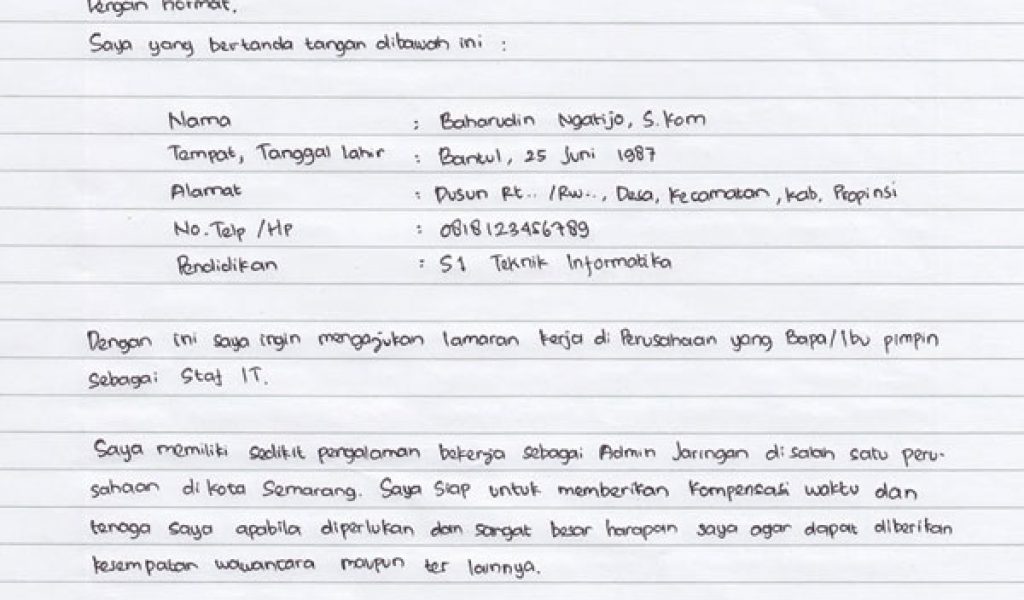 Dengan hormat,
Saya yang bertanda tangan dibawah ini :
Nama : Baharudin Ngatijo, S.Kom
Tempat, Tanggal lahir : Bantul, 25 Juni 1987
Alamat : Dusun Rt.. /Rw.., Desa, Kecamatan, Kab, Propinsi
No.Telp /Hp : 0818123456789
Pendidikan : S1 Teknik Informatika
Dengan ini saya ingin mengajukan lamaran kerja di Perusahaan yang Bapa/Ibu pimpin
sebagai Staf IT.
Saya memiliki sedikit pengalaman bekerja sebagai Admin Jaringan di salah satu peru-
sahaan di kota Semarang. Saya siap untuk memberikan kompensasi waktu dan
tenaga saya apabila diperlukan dan sangat besar harapan saya agar dapat diberikan
kesempatan wawancara maupun tes lainnya.